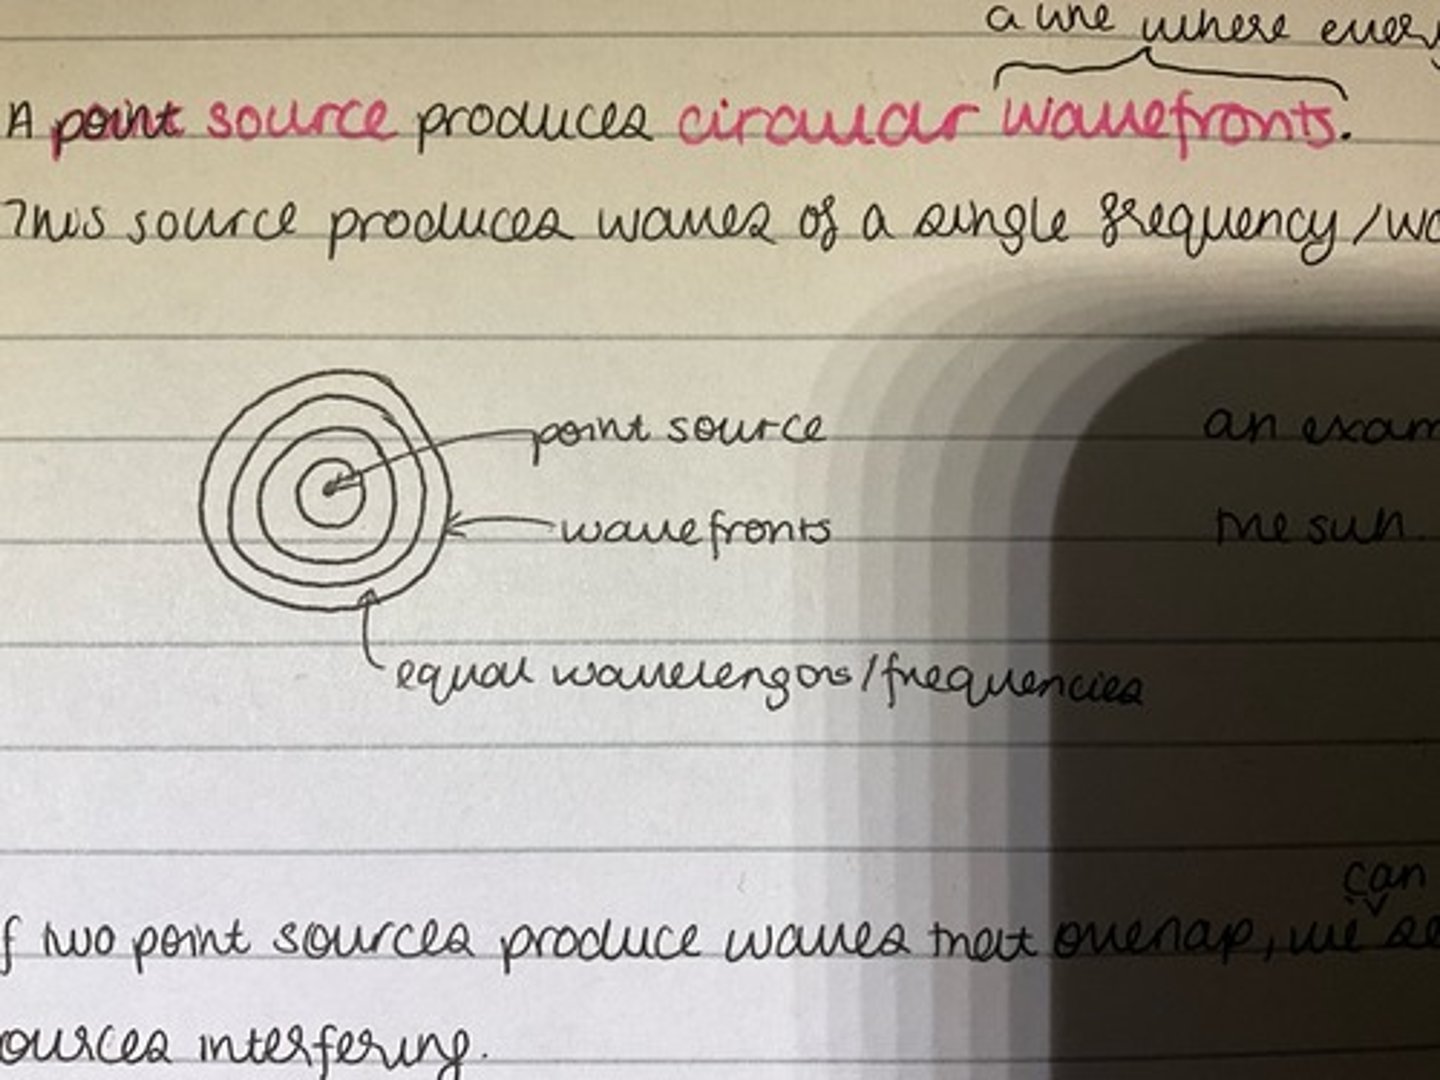 a line where every
A point source produces circular wavefronts.
This source produces waves of a single frequency/wa
point source
an exam
wavefronts
the sun.
equal wavelengths/frequencies
can
f two point sources produce waves that overlap, we se
ources interfering.